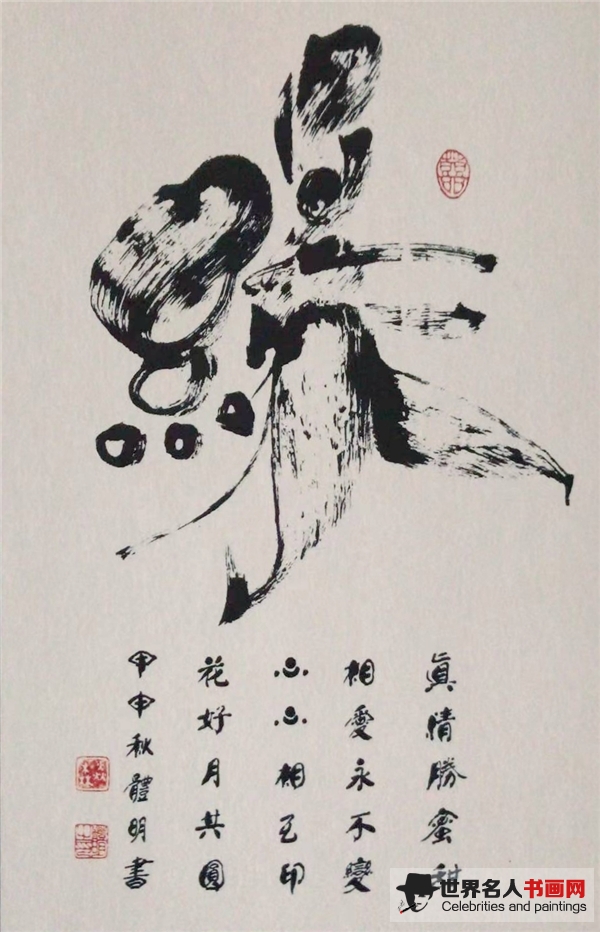 緣
眞情勝蜜甜
相愛永不變
心心相互印
花好月共圓
甲申秋體明書
世界名人书画网
Celebrities and paintings